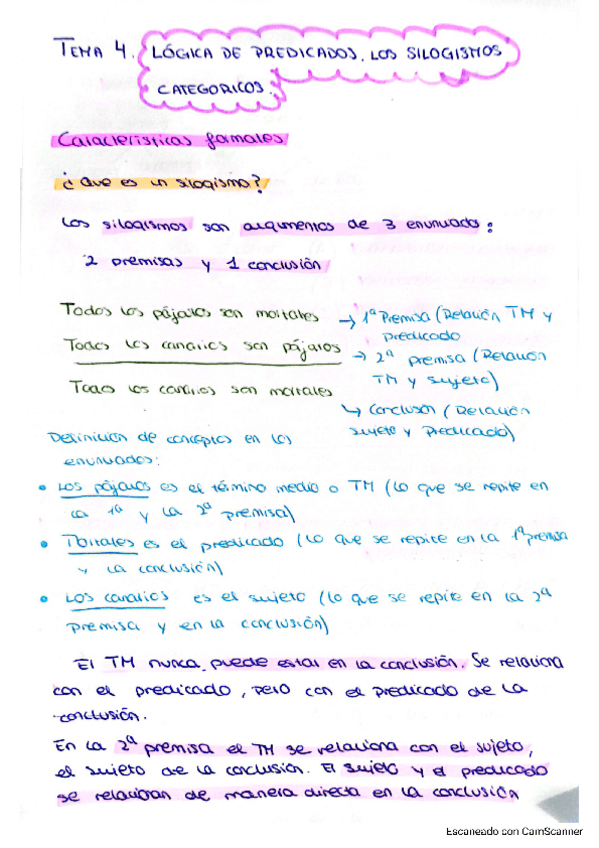 TEMA 4. LÓGICA DE PREDICADOS. LOS SILOGISMOS
CATEGORICOS.
Características formales
¿Que es un silogismo?
Los silogismos son argumentos de 3 enunciado:
2 premisas y 1 conclusión
Todos los pájaros son mortales → 1ª Premisa (Relación TM y
predicado
Todos los canarios son pájaros → 2ª premisa (Relación
TM y sujeto)
Todo los canarios son mortales
↳ Conclusión (Relación
sujeto y predicado)
Definición de conceptos en los
enunciados:
• Los pájaros es el término medio o TM (lo que se repite en
la 1ª y la 2ª premisa)
• Mortales es el predicado (lo que se repite en la 1ª premisa
y la conclusión)
• Los canarios es el sujeto (lo que se repite en la 2ª
premisa y en la conclusión)
El TM nunca puede estar en la conclusión. Se relaciona
con el predicado, pero con el predicado de la
conclusión.
En la 2ª premisa el TM se relaciona con el sujeto,
el sujeto de la conclusión. El sujeto y el predicado
se relacionan de manera directa en la conclusión
Escaneado con CamScanner